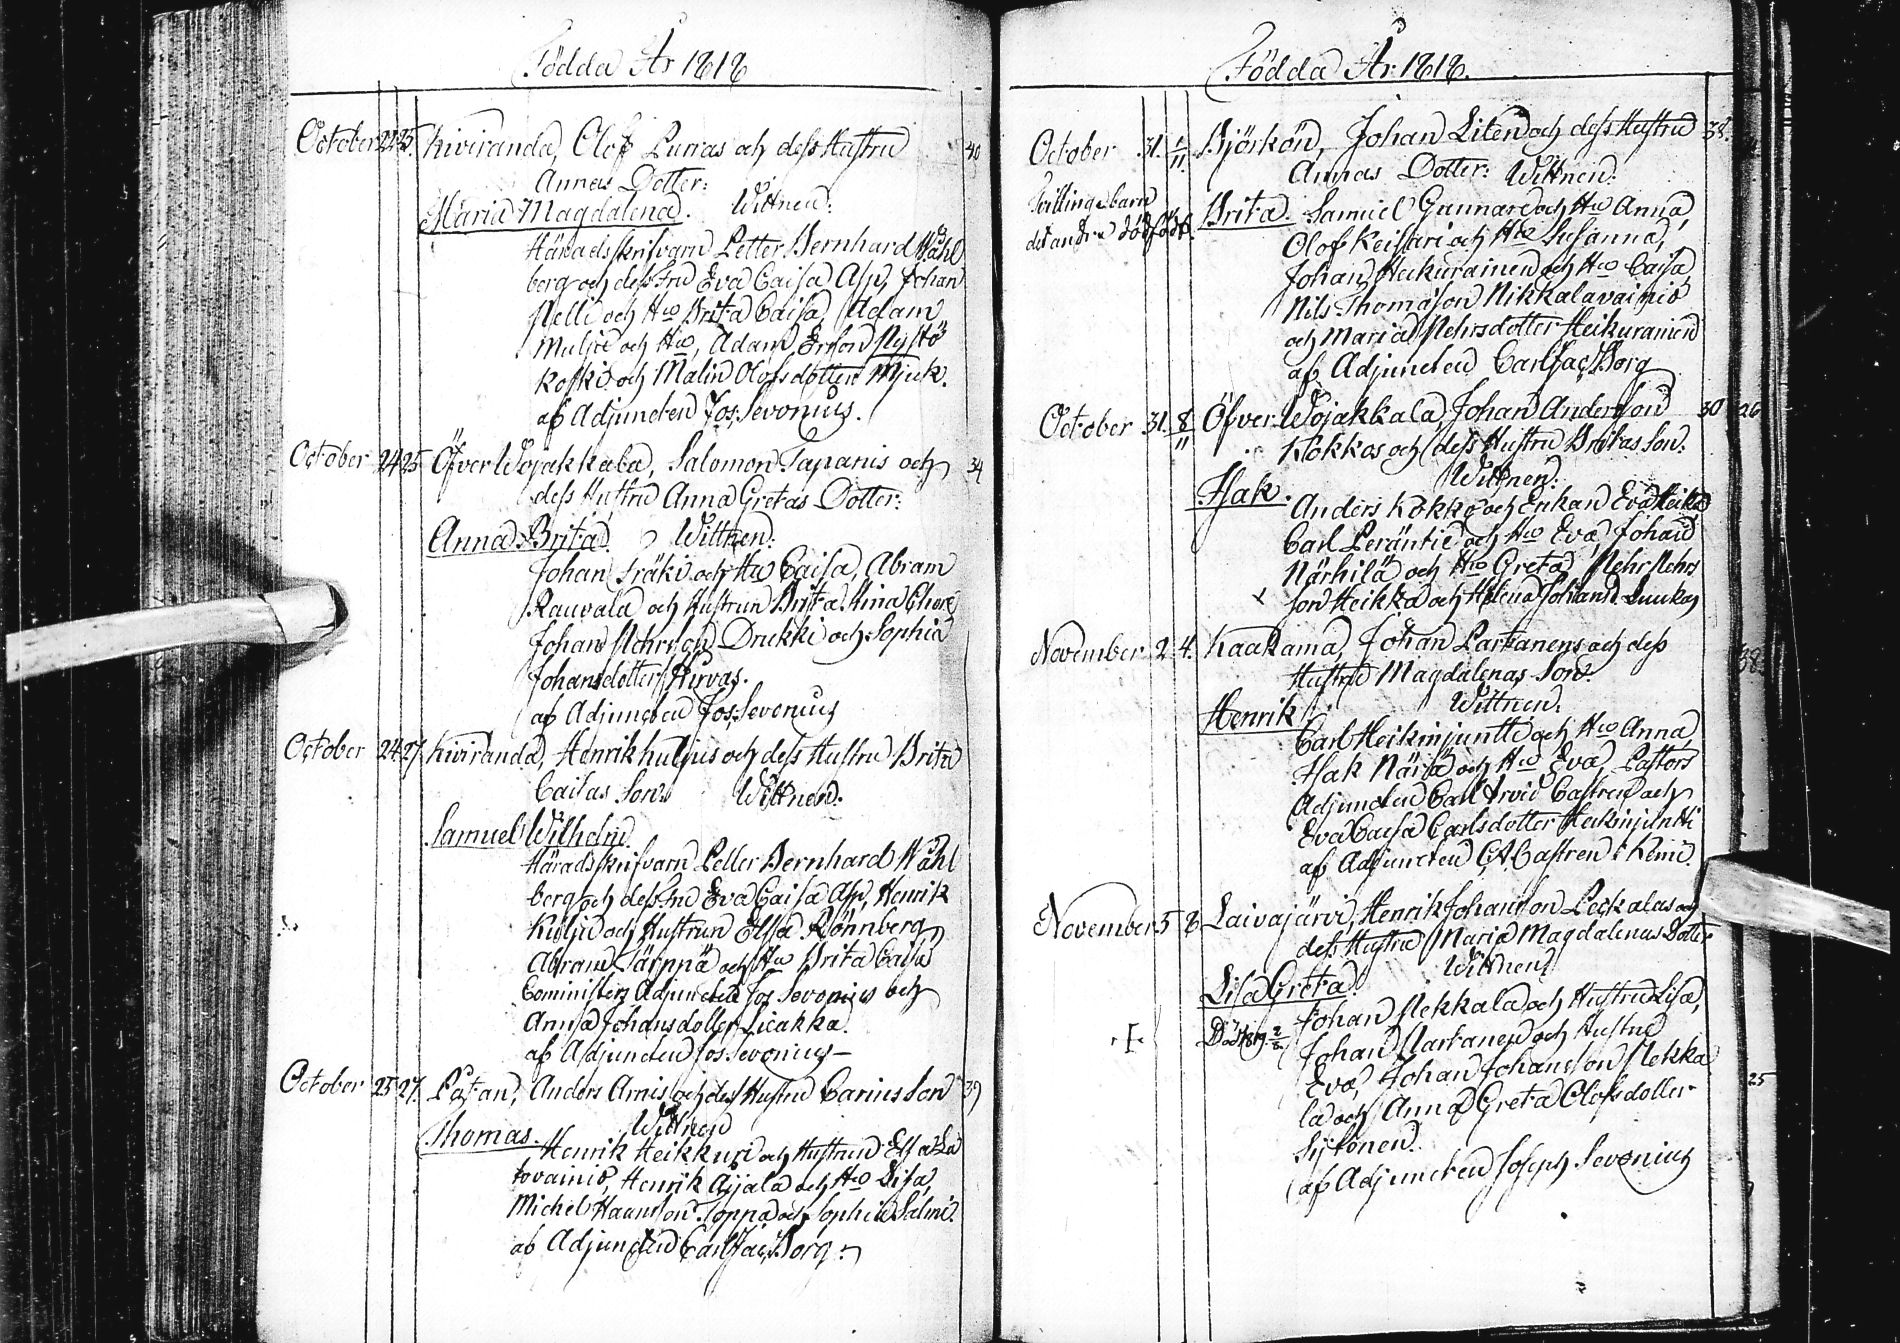 Födda År 1818
October 22 25. Kiviranda, Olof Purras och dess Hustru 40
Annas Dotter:
Maria Magdalena. Wittnen:
Häradsskrifvarn Petter Bernhard Wahl
berg och dess Fru Eva Caisa Asp, Johan
Nelli och H:u Brita Caisa, Adam
och H:u, Adam Ersson
koski och Malin Olofsdotter Mjuk.
af Adjuncten Jos: Sevonius.
October 24 25 Öfver Wojakkala, Salomon Tapanis och 34
dess Hustru Anna Gretas Dotter:
Anna Brita. Wittnen:
Johan Fräki och H:u Caisa, Abram
Rauvala och Hustrun Brita Stina
Johan Nehrsson Drukki och Sophia
Johansdotter Hurvas.
af Adjuncten Jos: Sevonius
October 24 27 Kiviranda, Henrik Kuljus och dess Hustru Brita
Caisas Son. Wittnen:
Samuel Wilhelm.
Häradsskrifvarn Petter Bernhard Wahl
berg och dess Fru Eva Caisa Asp, Henrik
Kulju och Hustrun Elsa Rönnberg,
Abram Särppä och H:u Brita Caisa
Comministers Adjuncten Jos Sevonius och
Anna Johansdotter Licakka.
af Adjuncten Jos: Sevonius –
October 25 27. Laxan, Anders Arnis och dess Hustru Carins Son 39
Wittnen
Thomas. Henrik Heikkuri och Hustrun Elsa La
tovainio, Henrik Ajjala och H:u Lisa,
Michel Hansson Toppa och Sophia Salmi.
af Adjuncten Carl Jac: Borg.
Födda År 1818.
October 31. 1/11. Björkön, Johan Liten och dess Hustru 38.
Annas Dotter: Wittnen:
Tvillingebarn
det andra dödfödt.
Brita. Samuel Gunnare och H:u Anna,
Olof Keisari och H:u Susanna,
Johan Heikurainen och H:u Caisa,
Nils Thomasson Nikkalavainio
och Maria Nehrsdotter Heikurainen
af Adjuncten Carl Jac: Borg
October 31. 8/11 Öfver Wojakkala, Johan Andersson 30 26
Kokkos och dess Hustru Britas Son.
Wittnen:
Isak. Anders Kokko och Enkan Eva Heikka
Carl Peräntie och H:u Eva, Johan
Närhilä och H:u Greta, Nehr Nehrs
son Heikka och Helena Johansd. Luukas
November 2 4. Kaakama, Johan Partanens och dess 38.
Hustru Magdalenas Son.
Wittnen:
Henrik. Carl Heikinjuntti och H:u Anna,
Isak Näisä och H:u Eva, Pastors
Adjuncten Carl Arvid Castren och
Eva Caisa Carlsdotter Heikinjuntti
af Adjuncten C A Castren i Kemi.
November 5 8 Laivajärvi, Henrik Johansson Peckalas och
dess Hustru Maria Magdalenas Dotter
Wittnen:
Lisa Greta. Johan Nekkala och Hustru Lisa,
Död 1819
Johan Martanen och Hustru
Eva, Johan Johansson Nekka 25
la och Anna Greta Olofsdotter
Sylönen.
af Adjuncten Joseph Sevonius